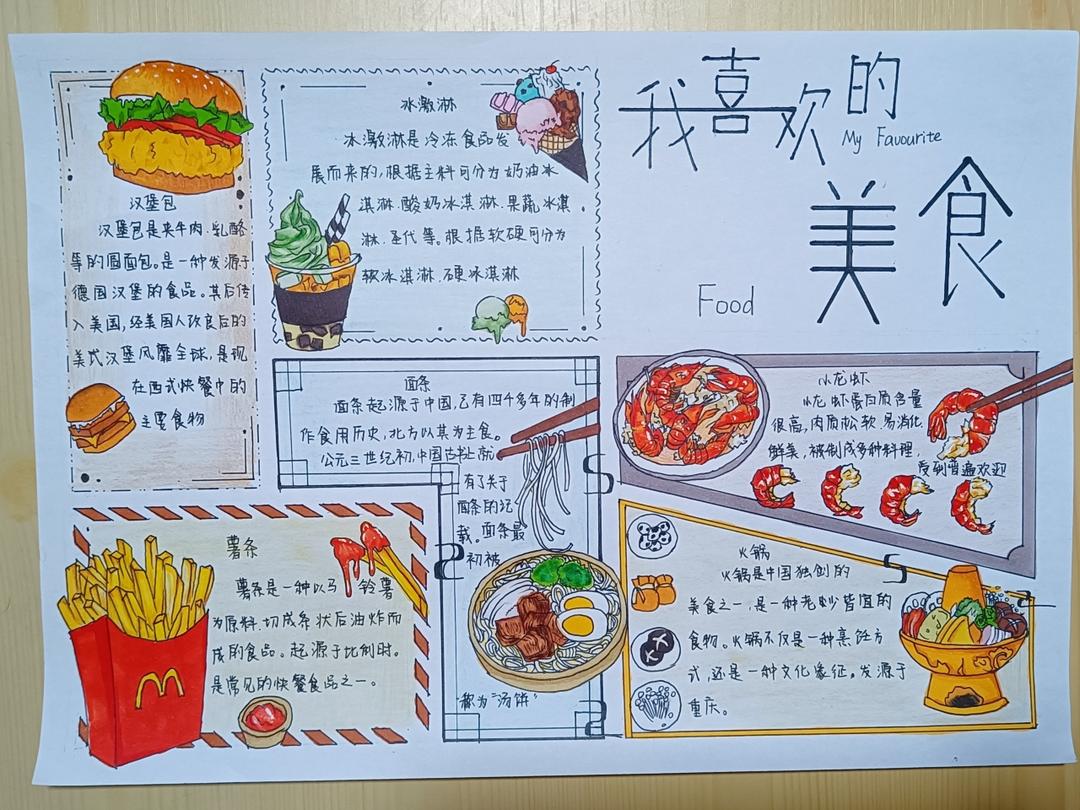 我喜欢的
My Favourite
美食
Food
汉堡包
汉堡包是夹牛肉、乳酪
等的圆面包。是一种发源于
德国汉堡的食品。其后传
入美国,经美国人改良后的
美式汉堡风靡全球,是现
在西式快餐中的
主要食物
冰激淋
冰激淋是冷冻食品发
展而来的,根据主料可分为奶油冰
淇淋.酸奶冰淇淋.果蔬冰淇
淋.圣代等。根据软硬可分为
软冰淇淋.硬冰淇淋
面条
面条起源于中国,已有四千多年的制
作食用历史,北方以其为主食。
公元三世纪初,中国古书上就
有了关于
面条的记
载。面条最
初被
称为“汤饼”
小龙虾
小龙虾蛋白质含量
很高,肉质松软.易消化,
鲜美,被制成多种料理,
受到普遍欢迎
薯条
薯条是一种以马铃薯
为原料.切成条状后油炸而
成的食品。起源于比利时。
是常见的快餐食品之一。
火锅
火锅是中国独创的
美食之一,是一种老少皆宜的
食物。火锅不仅是一种烹饪方
式,还是一种文化象征。发源于
重庆。